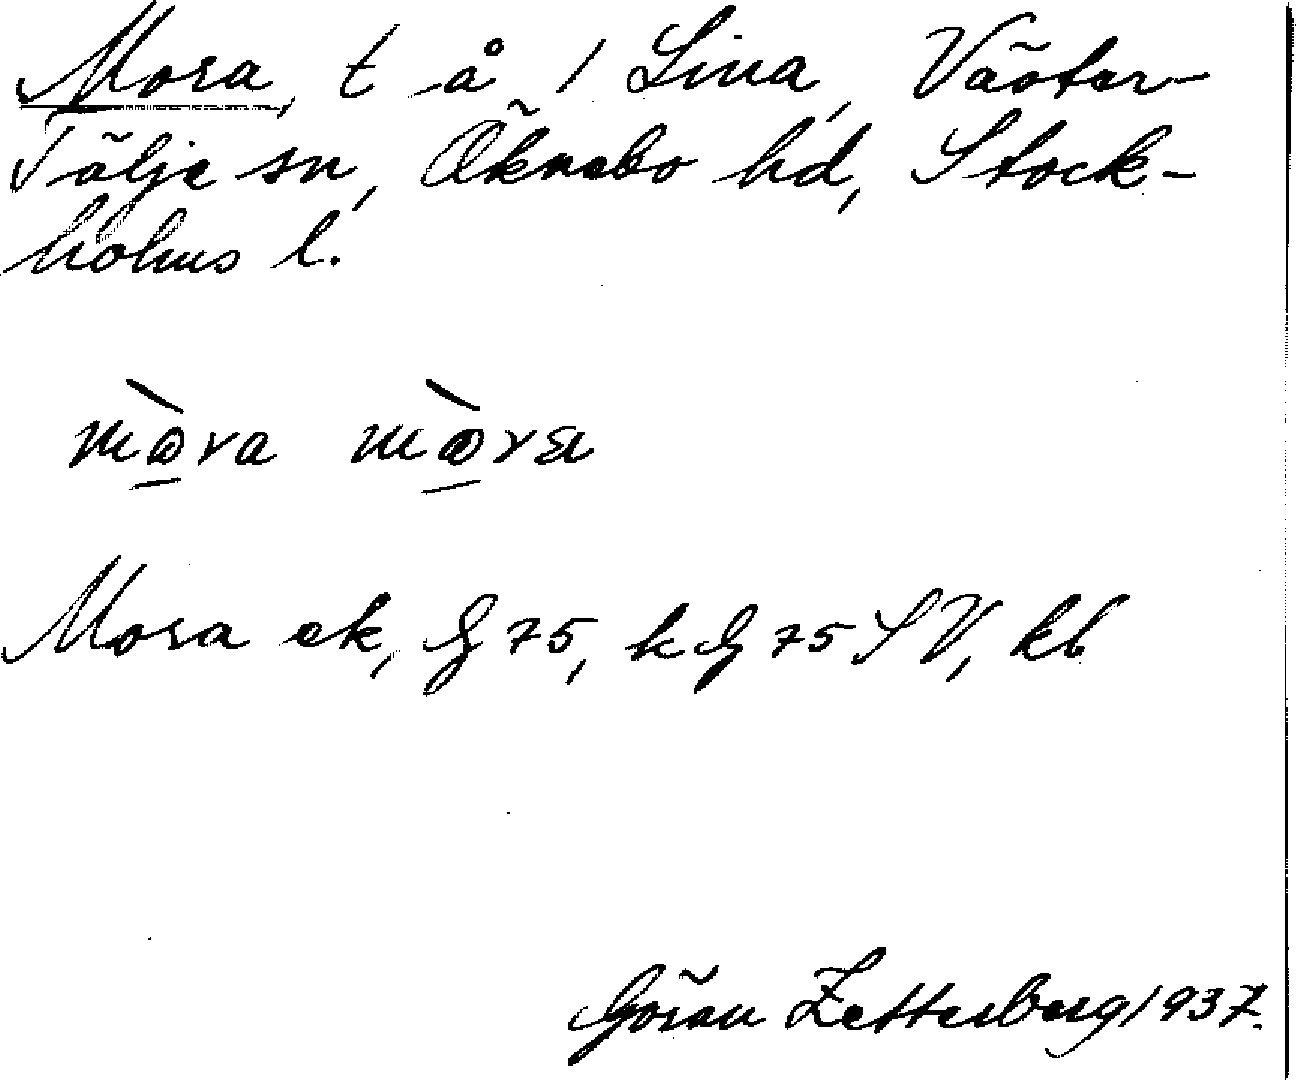 Mora, t å 1 Lina, Väster-
Tälje sn, Öknebo hd, Stock-
holms l.
mò̱ra mò̱ra
Mora ek, G 75, k G 75 SV, kb
Göran Zetterberg 1937.